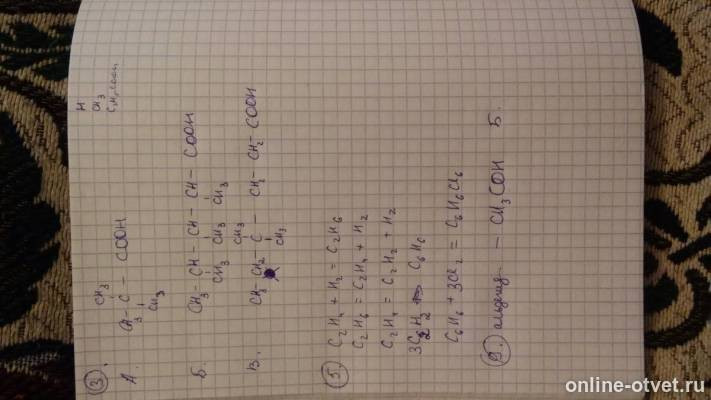 H
CH3
C2H5COOH
3.
А.
CH3
CH3 - C - COOH
CH3
Б.
CH3 - CH - CH - CH - COOH
CH3 CH3 CH3
В.
CH3
CH3 CH2 - C - CH2 - CH2 - COOH
CH3
5. C2H4 + H2 = C2H6
C2H6 = C2H4 + H2
C2H4 = C2H2 + H2
3C2H2 => C6H6
C6H6 + 3Cl2 = C6H6Cl6
9. альдегид - CH3COH Б.
online-otvet.ru